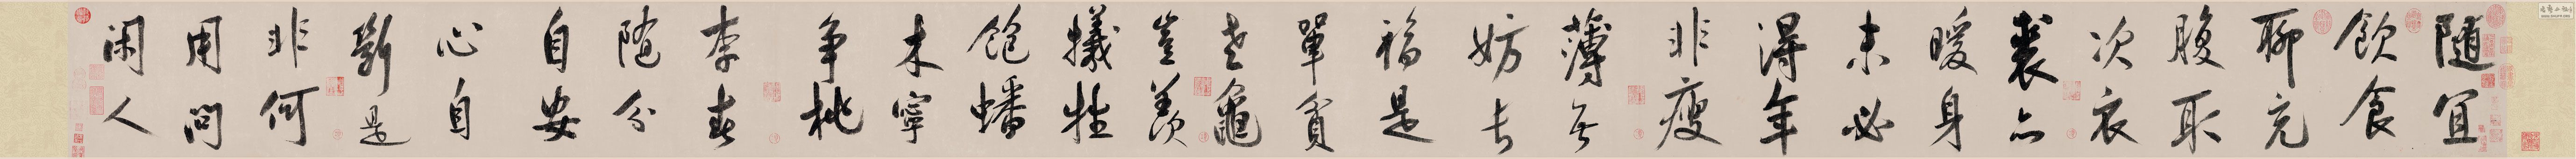 隨宜
飲食
聊充
腹取
次衣
裘亦
暖身
未必
得年
非瘦
薄無
妨長
福是
單貧
老龜
豈羨
犧牲
飽蟠
木寧
爭桃
李春
隨分
自安
心自
斷是
非何
用問
閑人